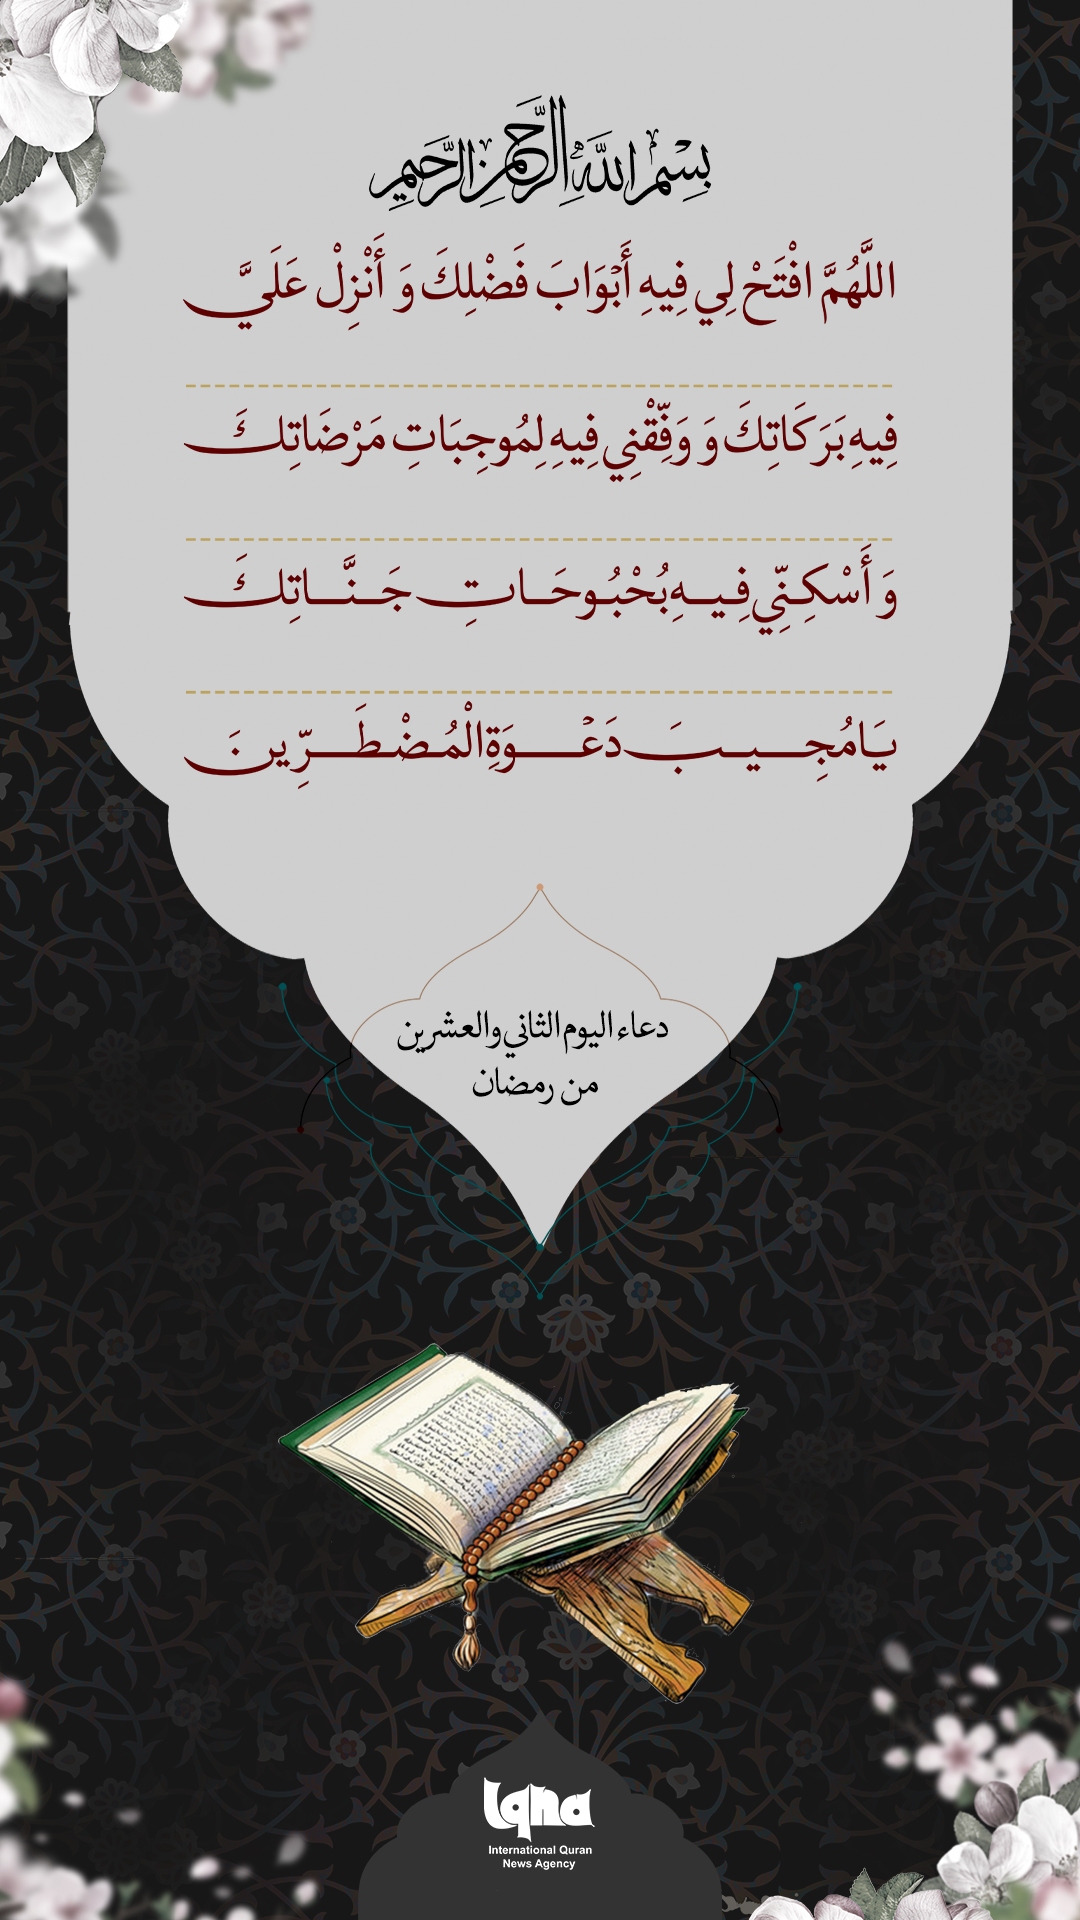 بِسْمِ اللَّهِ الرَّحْمنِ الرَّحِيمِ
اللَّهُمَّ افْتَحْ لِي فِيهِ أَبْوَابَ فَضْلِكَ وَ أَنْزِلْ عَلَيَّ
فِيهِ بَرَكَاتِكَ وَ وَفِّقْنِي فِيهِ لِمُوجِبَاتِ مَرْضَاتِكَ
وَ أَسْكِنِّي فِيهِ بُحْبُوحَاتِ جَنَّاتِكَ
يَا مُجِيبَ دَعْوَةِ الْمُضْطَرِّينَ
دعاء اليوم الثاني والعشرين
من رمضان
Iqna
International Quran
News Agency